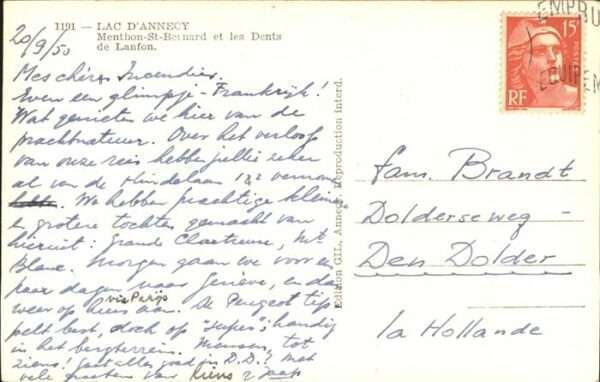 1191 — LAC D'ANNECY
Menthon-St-Bernard et les Dents
de Lanfon.
20/9/50
Mes chers Incendies.
Even een glimpje - Frankrijk!
Wat genieten we hier van de
prachtnatuur. Over het verloop
van onze reis hebben jullie zeker
al van de 132 vernomen
We hebben prachtige kleine
en grotere tochten gemaakt van
hieruit: Grande Chartreuse, Mt
Blanc. Morgen gaan we voor een
paar dagen naar Genève, en dan
weer op huis aan. via Parijs De Peugeot
best, doch op "super"; handig
in het bergterrein. Mensen, tot
ziens! Gaat alles goed in D.D.? Met
vele groeten van Riens & Jaap
Edition GIL, Annecy. Reproduction interd.
EMPRU
EQUIPEM
15F
POSTES
RF
fam. Brandt
Dolderseweg -
Den Dolder
la Hollande